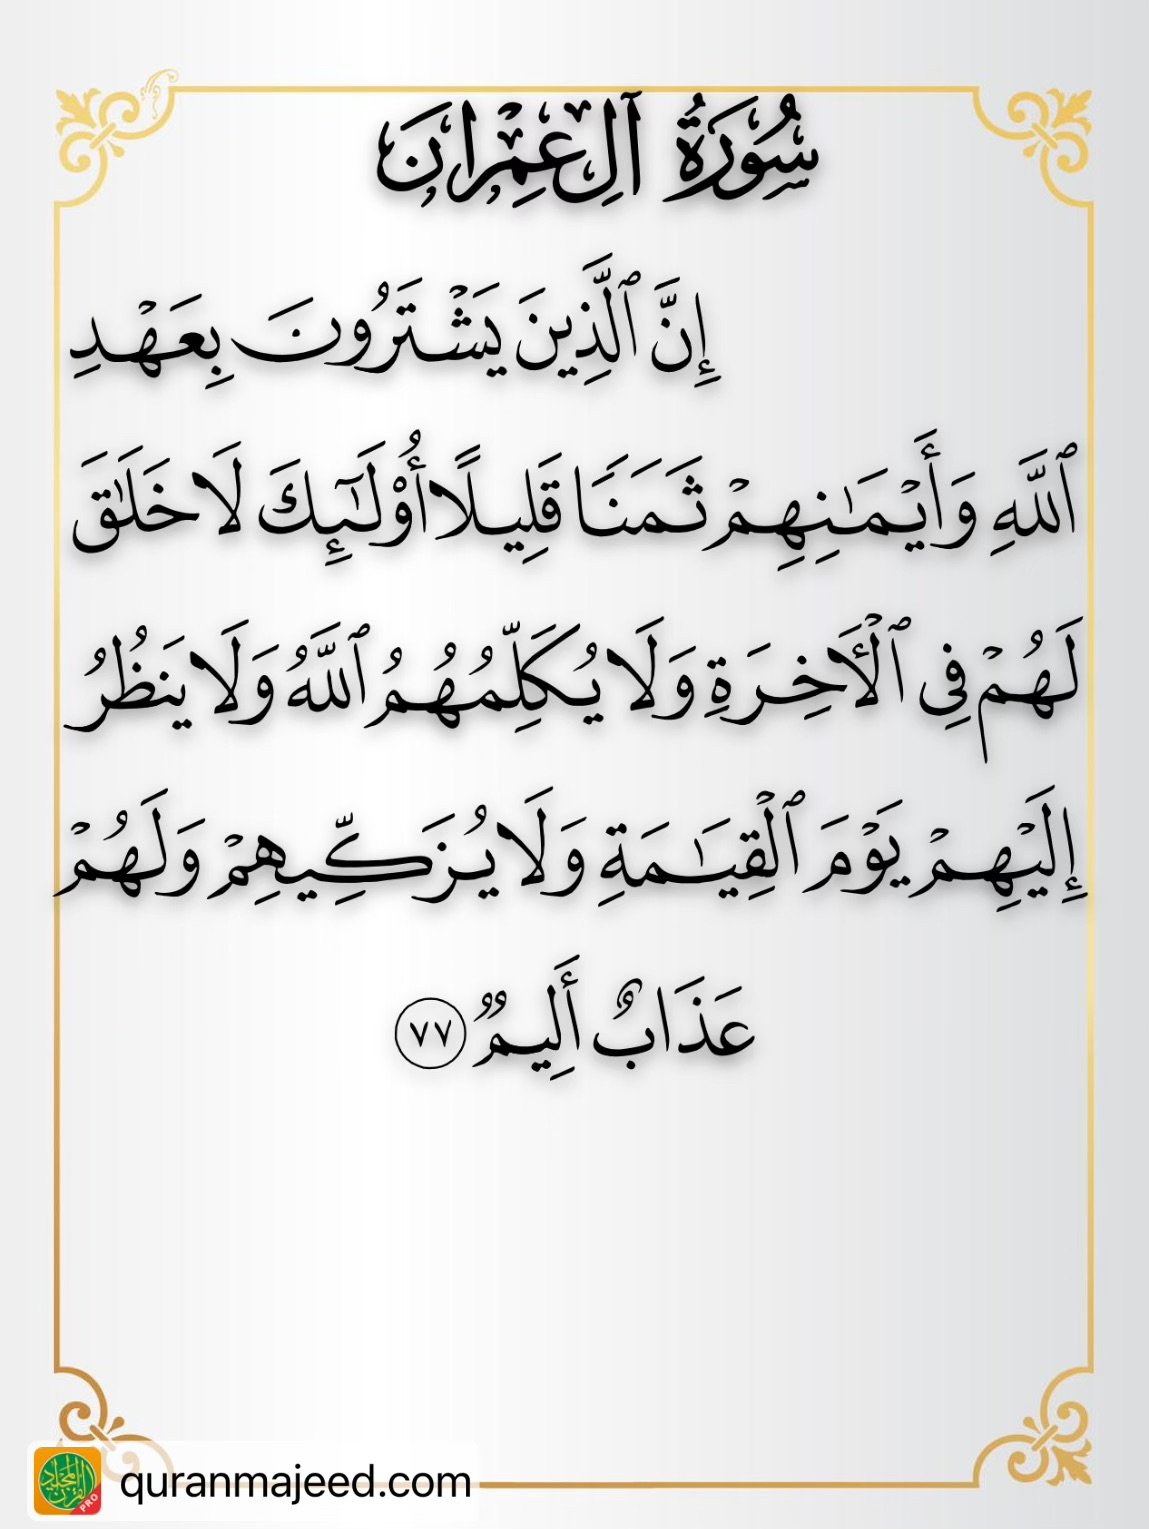 سُورَةُ آلِ عِمْرَانَ
إِنَّ ٱلَّذِينَ يَشْتَرُونَ بِعَهْدِ
ٱللَّهِ وَأَيْمَـٰنِهِمْ ثَمَنًا قَلِيلًا أُو۟لَـٰٓئِكَ لَا خَلَـٰقَ
لَهُمْ فِى ٱلْأَخِرَةِ وَلَا يُكَلِّمُهُمُ ٱللَّهُ وَلَا يَنظُرُ
إِلَيْهِمْ يَوْمَ ٱلْقِيَـٰمَةِ وَلَا يُزَكِّيهِمْ وَلَهُمْ
عَذَابٌ أَلِيمٌ ٧٧
quranmajeed.com
القرآن المجيد
PRO